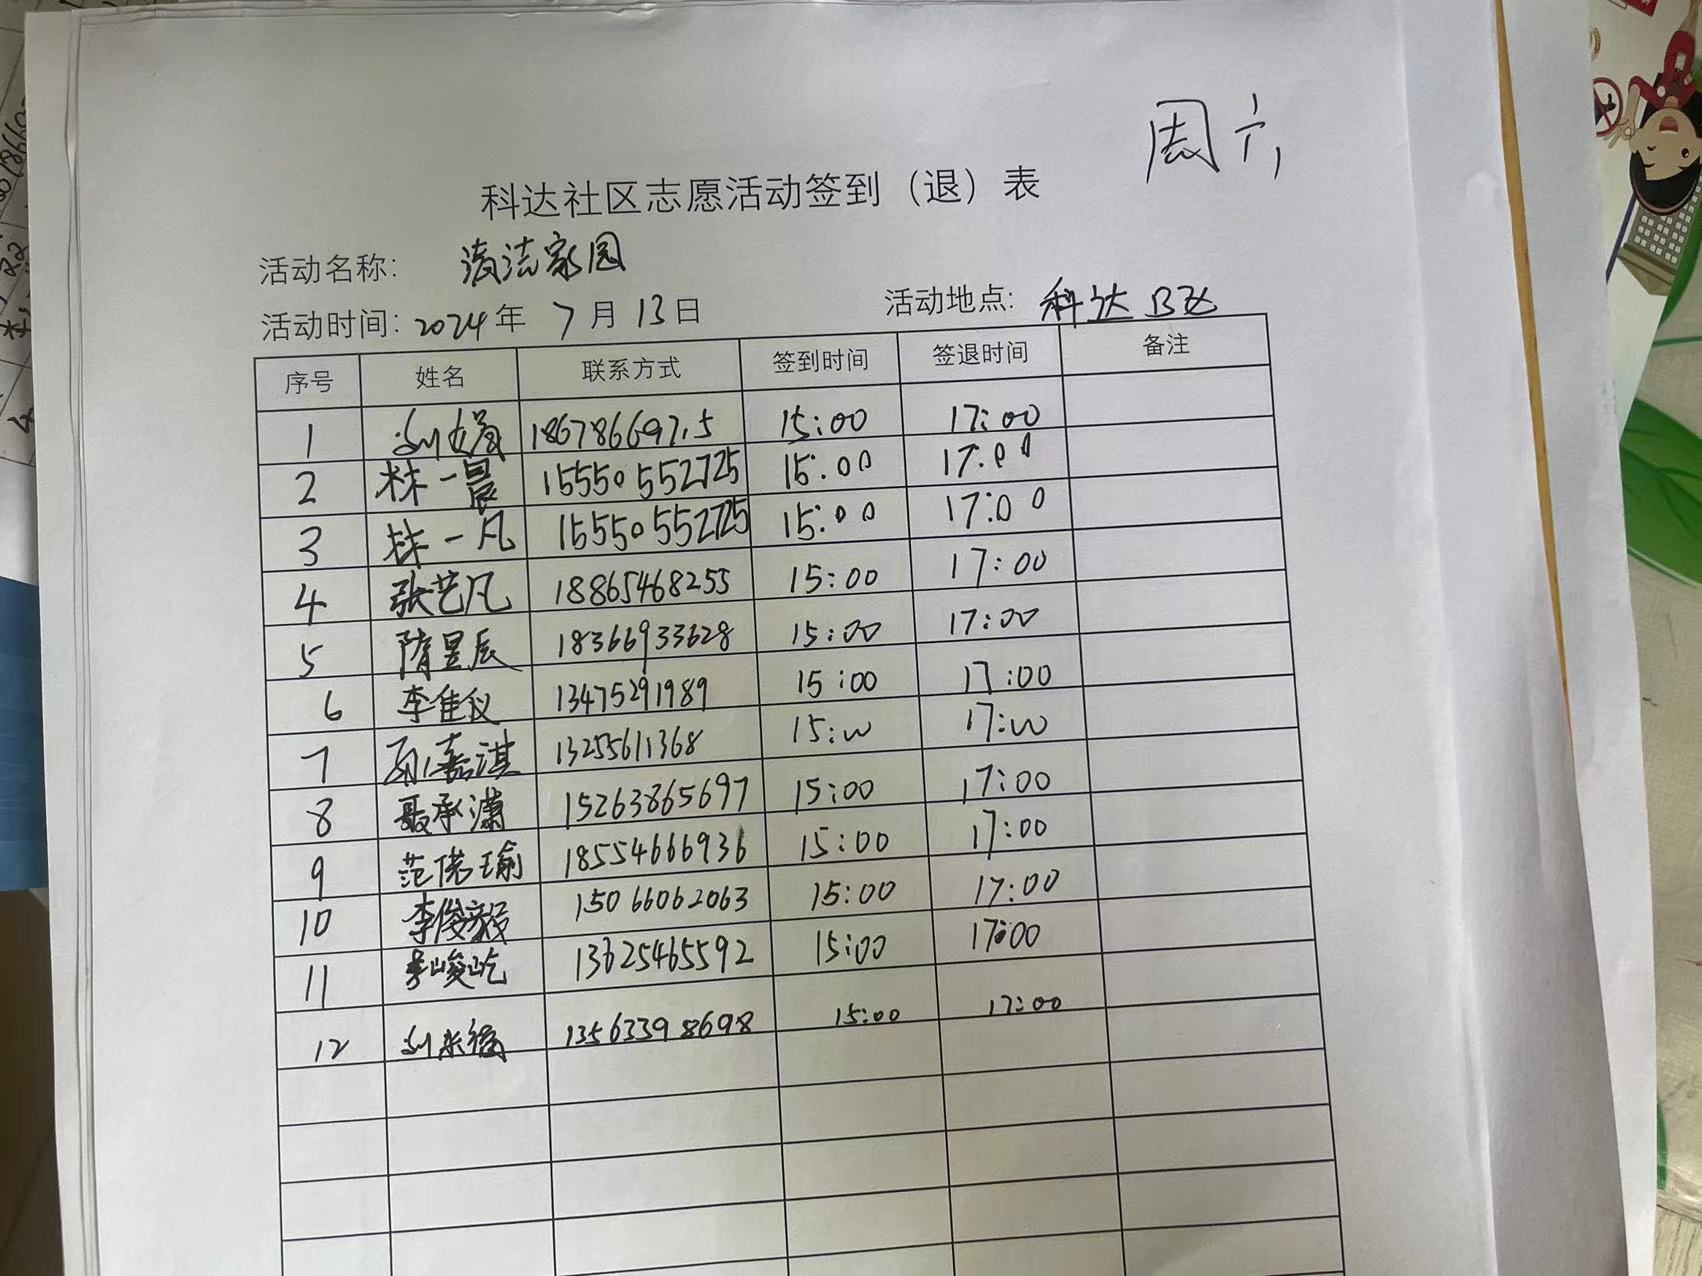 周六
科达社区志愿活动签到（退）表
活动名称： 清洁家园
活动时间：2024年 7月13日 活动地点：科达B区
序号 姓名 联系方式 签到时间 签退时间 备注
1 刘娟 15:00 17:00
2 林一晨 15550552725 15:00 17:00
3 林一凡 15550552725 15:00 17:00
4 张艺凡 18865468255 15:00 17:00
5 隋昱辰 18366933628 15:00 17:00
6 李佳仪 13475291989 15:00 17:00
7 孙嘉淇 13255611368 15:00 17:00
8 聂承潇 15263865697 15:00 17:00
9 范偌瑜 18554666936 15:00 17:00
10 李俊毅 15066062063 15:00 17:00
11 李峻屹 13625465592 15:00 17:00
12 13563398698 15:00 17:00